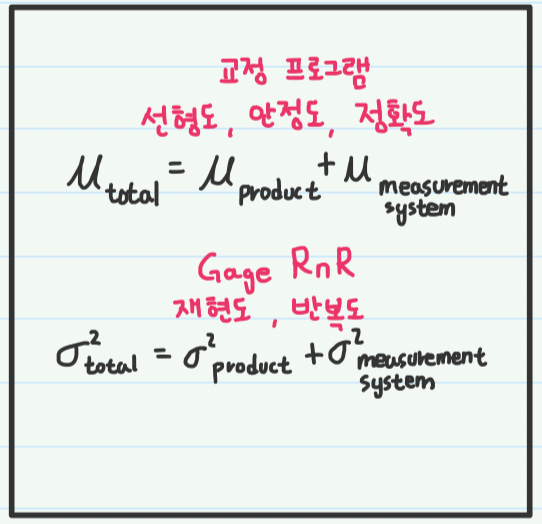 교정 프로그램
선형도, 안정도, 정확도
μ total = μ product + μ measurement system
Gage RnR
재현도, 반복도
σ² total = σ² product + σ² measurement system